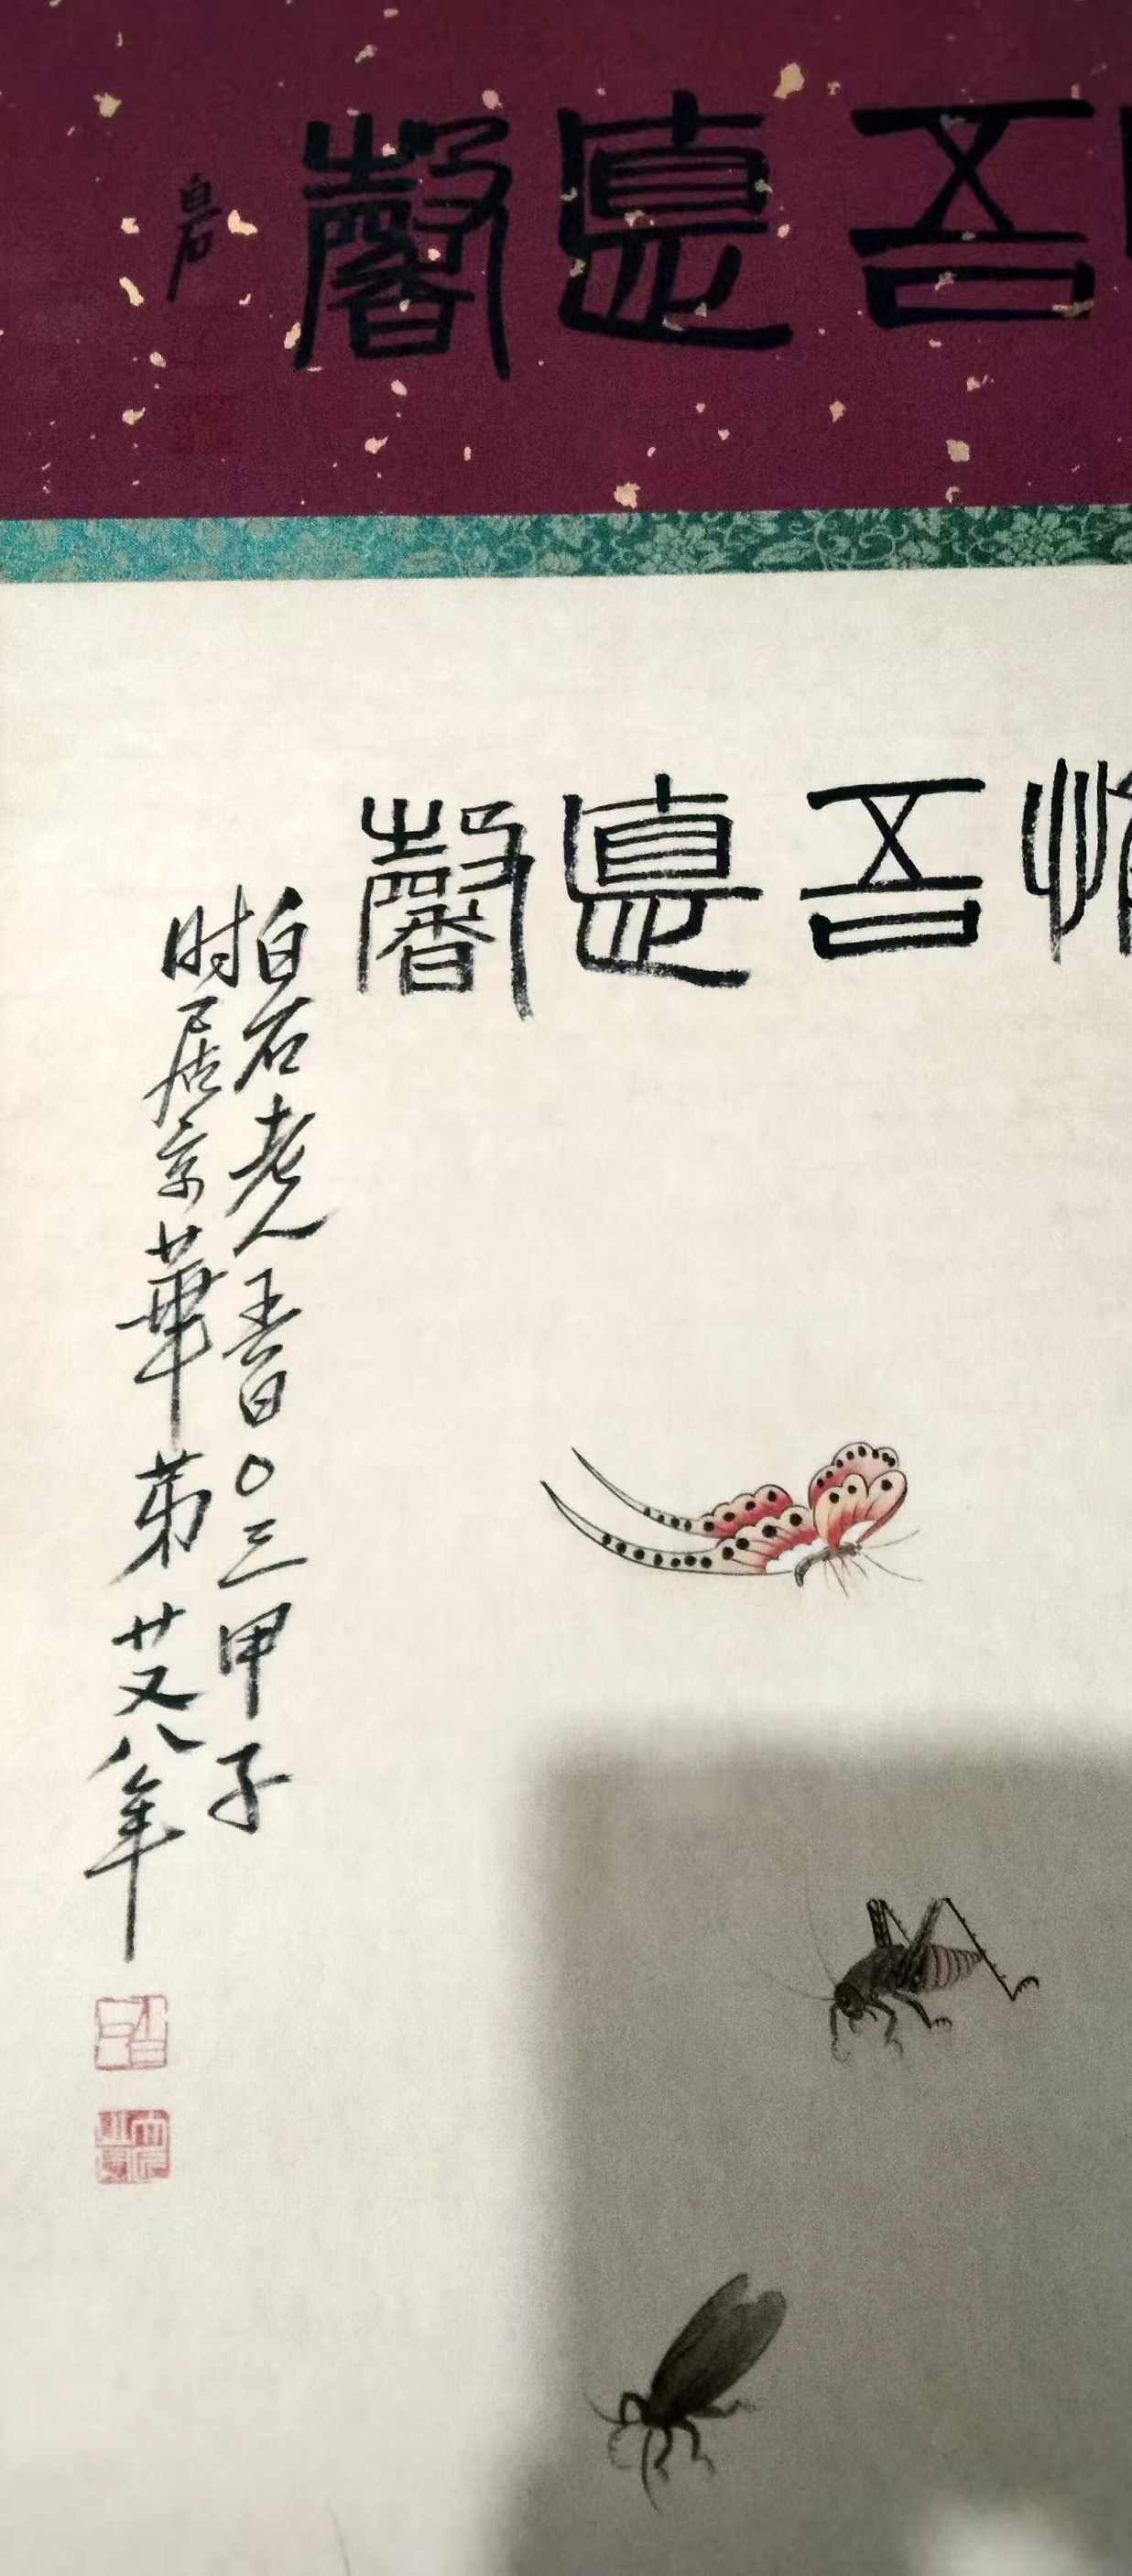 吾悳馨
白石
吾悳馨
白石老人〇三甲子
时居京華第廿又八年